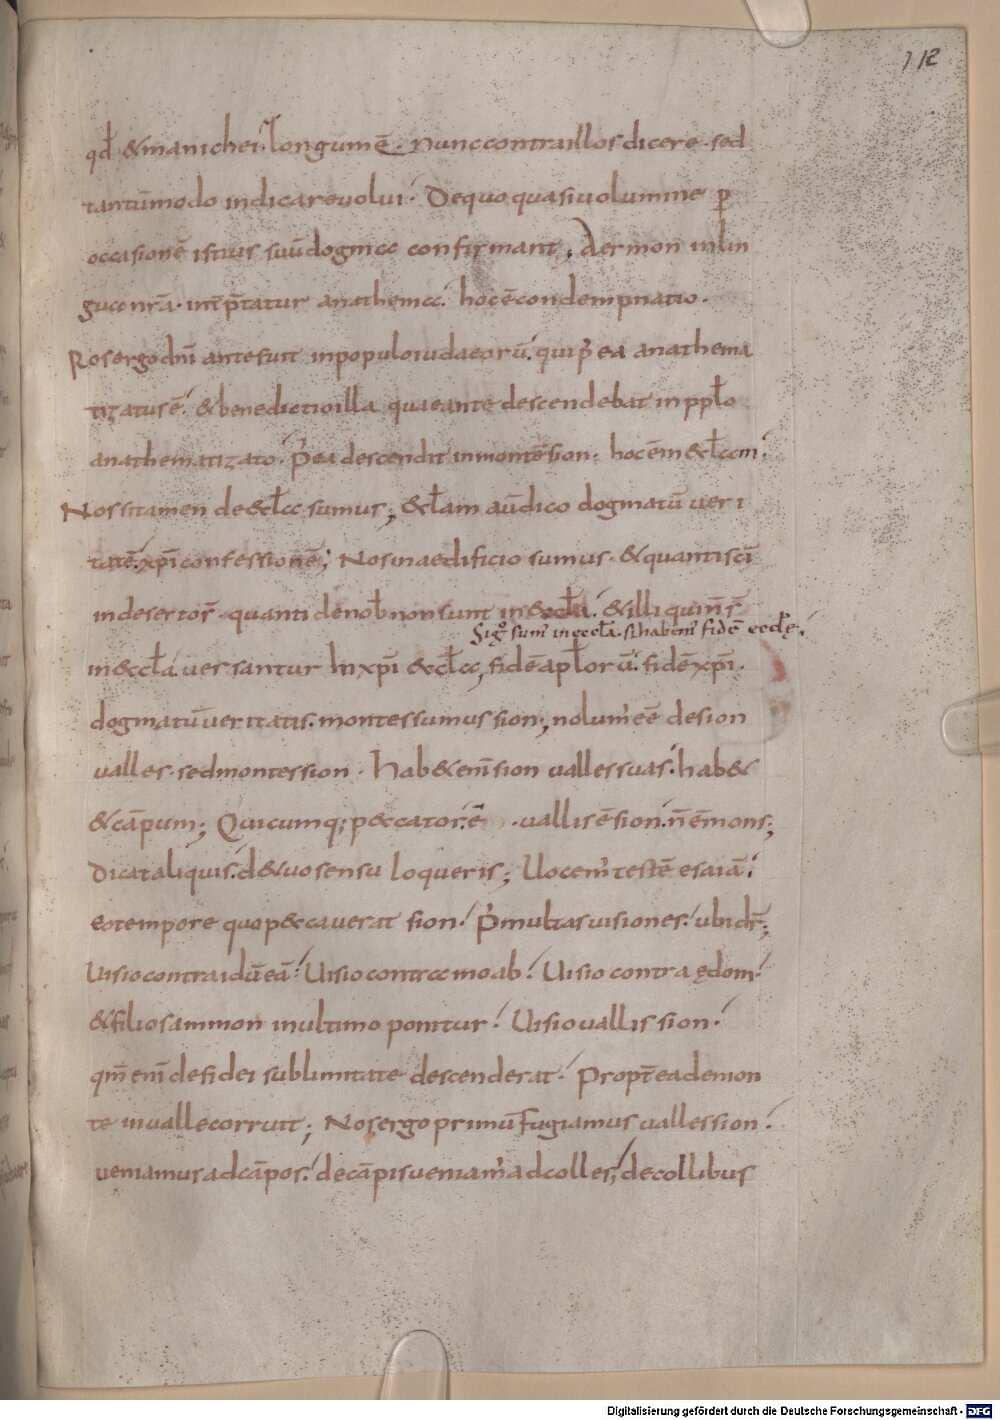 112
qd̄ & manichei. longum ē. Nunc contra illos dicere. sed
tantūmodo indicare volui. De quo quasi volumine ꝑ
occasionē istius suū dogma confirmant; Aermon in lin
gua nr̄a. int̄p̄tatur anathema. hoc ē condempnatio.
Ros ergo dn̄i ante fuit in populo iudaeorū. qui p̄ ea anathema
tizatus ē. & benedictio illa quae ante descendebat in ppło
anathematizato. p̄ ea descendit in montē sion. hoc ē in &cłam.
Nos si tamen de &cła sumus; &cłam aū dico dogmatū veri
tatē. xp̄i confessionē; Nos in aedificio sumus. & quanti sc̄i
in desertor̄. quanti de nob̄ non sunt in &ccła. & illi qui n̄ s̄
Si gͦ sum' in eccła. si habem' fidē eccłę.
in &cła. versantur In xp̄i &cła, fidē apłorū. fidē xp̄i.
dogmatū veritatis. montes sumus sion; nolum' eē de sion
valles. sed montes sion. Hab& enī sion valles suas. hab&
& cāpum; Quicumq; p&cator. ē. vallis ē sion. n̄ ē mons;
Dicat aliquis. d& uo sensu loqueris; Uocem' testē esaiā.
eo tempore quo p&caverat sion. P̄ multas visiones. ubi dr̄;
Uisio contra idūeā. Uisio contra moab. Uisio contra ędom.
& filios ammon in ultimo ponitur. Uisio vallis sion.
qm̄ enī de fidei sublimitate descenderat. Propt̄ ea de mon
te in valle corruit; Nos ergo primū fugiamus valles sion.
veniamus ad cāpos. de cāpis veniam' ad colles, de collibus
Digitalisierung gefördert durch die Deutsche Forschungsgemeinschaft - DFG